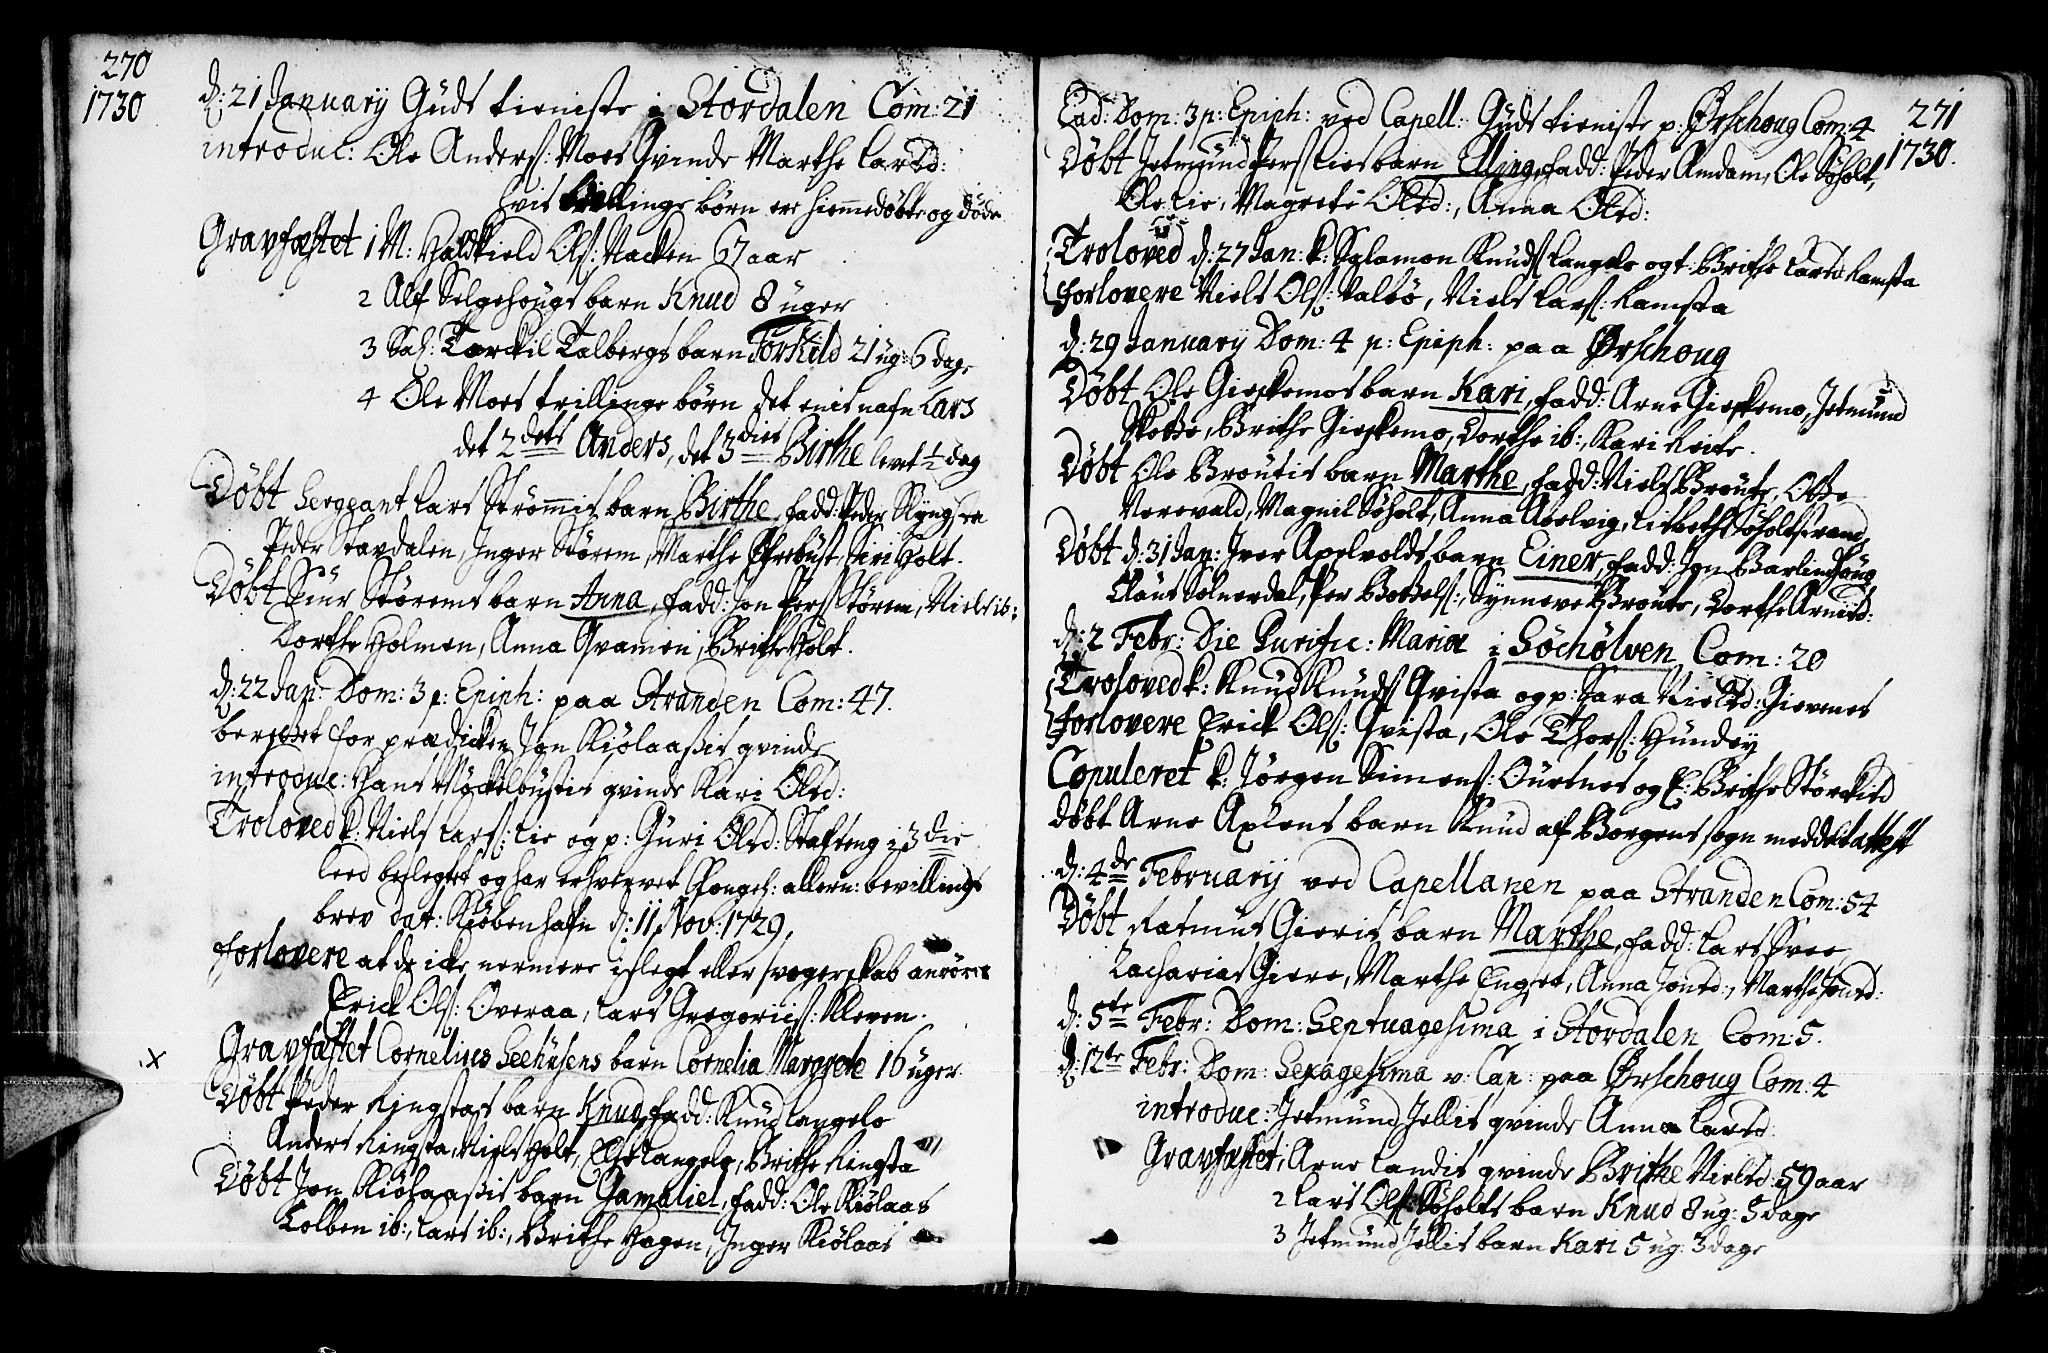 270
1730
d: 21 January Guds tieniste i Stordalen Com: 21
introduc: Ole Anders: Moes Qvinde Marthe Larsd:
hvis trillinge børn ere hiemmedøbte og døde
Gravfæstet 1 M: Haldkield Ols: Nacken 67 aar
2 Alf Selgehougs barn Knud 8 uger
3 Sal: Torckil Talbergs barn Torkild 21 ug: 6 dage
4 Ole Moes trillinge børn det enis nafn Lars
det 2dets Anders, det 3dies Birthe levet ½ dag
Døbt Sergeant Lars Strømmis barn Birthe, fadd: Peder
Peder Stavdalen, Inger Størem, Marthe Siri Holt.
Døbt Siur Størems barn Anna, fadd: Jon Pers: Størem, Niels ib:
Dorthe Holmen, Anna Qvamen, Brithe Holt.
d: 22 Jan: Dom: 3 p: Epiph: paa Stranden Com: 47.
berettet for prædicken Jon Kiølaasis qvinde
introduc: Hans Møckelbustis qvinde Kari Olsd:
Troloved k: Niels Lars: Lie og p: Guri Olsd: Stafseng i 3die
leed beslegtet og har erhvervet Kongel: allern: bevillings
brev dat: Kiøbenhafn d: 11 Nov: 1729.
forlovere at de icke nermere i slegt eller svogerskab anrøres
Erick Ols: Overaa, Lars Gregoriis: Kleven.
x Gravfæstet Cornelius Seehusens barn Cornelia Margrete 16 uger
Døbt Peder Ringstas barn Knud, fadd: Knud Langelo
Anders Ringsta, Niels Holt, Else Langelo, Brithe Ringsta
Døbt Jon Kiølaasis barn Gamaliel, fadd: Ole Kiølaas
Colben ib:, Lars ib:, Brithe Hagen, Inger Kiølaas
271
1730.
Ead: Dom: 3 p: Epiph: ved Capell: Guds tieniste p: Ørschoug Com: 4
Døbt Jetmund Pers: Lies barn Elling, fadd: Peder Amdam, Ole Søholt,
Ole Lie, Magrete Olsd:, Anna Olsd:
Troloved d: 27 Jan: k: Salamon Knuds: Langelo og t: Brithe Larsd: Ramsta
forlovere Niels Ols: Valbø, Niels Lars: Ramsta
d: 29 January Dom: 4 p: Epiph: paa Ørschoug
Døbt Ole Gieskemos barn Kari, fadd: Arne Gieskemo, Jetmund
Skotte, Brithe Gieskemo, Dorthe ib:, Kari Leite.
Døbt Ole Broutis barn Marthe, fadd: Niels Broute, Otte
Verevald, Magnil Søholt, Anna Abelvig, Lisbeth Søholtstrand,
Døbt d: 31 Jan: Iver Apelvolds barn Einer, fadd: Jon Barlindhoug
Claus Solnerdal, Per Botels:, Synneve Broute, Dorthe Arnisd:
d: 2 Febr: Die Purific: Mariæ i Søchølven Com: 20
Troloved k: Knud Knuds: Qvista og p: Sara Nielsd: Gievenes
forlovere Erick Ols: Qvista, Ole Thors: Hundey
Copuleret k: Jørgen Simens: Ourtnes og E: Brithe Størckisd
døbt Arne Axlens barn Knud af Borgens sogn meddelt attest
d: 4de February ved Capellanen paa Stranden Com: 54
Døbt Rasmus Gieris barn Marthe, fadd: Lars Svee,
Zacharias Giere, Marthe Engset, Anna Jonsd:, Marthe Jonsd:
d: 5te Febr: Dom: Septuagesima i Stordalen Com: 5.
d: 12te Febr: Dom: Sexagesima v: Cap: paa Ørschoug Com: 4
introduc: Jetmund Jellis qvinde Anna Larsd:
Gravfæstet, Arne Landis qvinde Brithe Nielsd: 59 aar
2 Lars Ols: Søholts barn Knud 8 ug: 5 dage
3 Jetmund Jellis barn Kari 5 ug: 3 dage